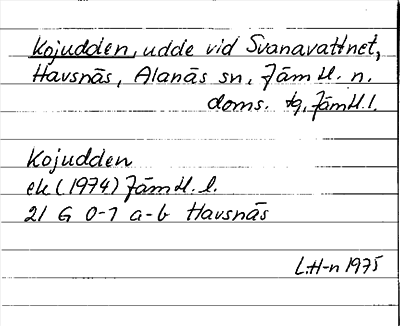 Kojudden, udde vid Svanavattnet,
Havsnäs, Alanäs sn, Jämtl. n.
doms. tg, Jämtl. l.
Kojudden
ek (1974) Jämtl. l.
21 G 0-1 a-b Havsnäs
L.H-n 1975